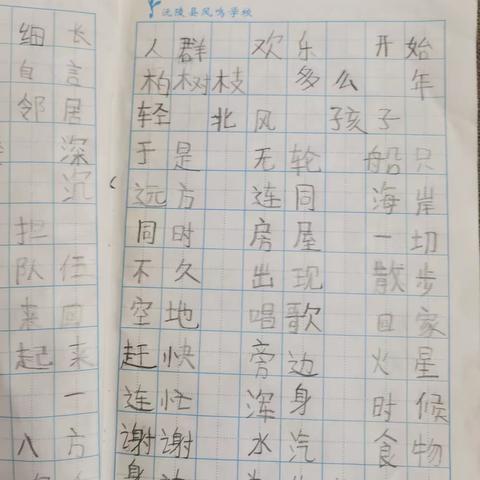 沅陵县凤鸣学校
细 长
自 言
邻 居
深
沉
担
队 伍
来 回
起 来
一
八 方
人群 欢乐 开始
柏树枝 多么 年
轻 北风 孩子
于是 无轮 船只
远方 连同 海岸
同时 房屋 一切
不久 出现 散步
空地 唱歌 回家
赶快 旁边 火星
连忙 浑身 时候
谢谢 水汽 食物